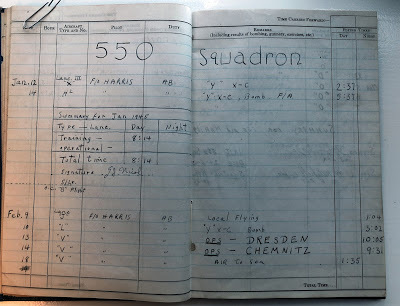 TIME CARRIED FORWARD:—
DATE HOUR AIRCRAFT TYPE AND NO. PILOT DUTY REMARKS (Including results of bombing, gunnery, exercises, etc.) FLYING TIMES DAY NIGHT
550 Squadron
Jan. 12 Lanc. III F/O HARRIS AB "Y" X-C 2:37
14 " " "Y" X-C, Bomb. F/A. 5:37
Summary for Jan 1945
Type — Lanc. Day Night
Training — 8:14
operational —
Total time 8:14
Signature
O.C. "B" Flight
Feb. 9 F/O HARRIS AB Local Flying 1:04
10 "L" " " "Y" X-C Bomb 5:02
13 "V" " " OPS — DRESDEN 10:05
14 "V" " " OPS — CHEMNITZ 9:31
18 "V" " " Air To Sea 1:35
TOTAL TIME